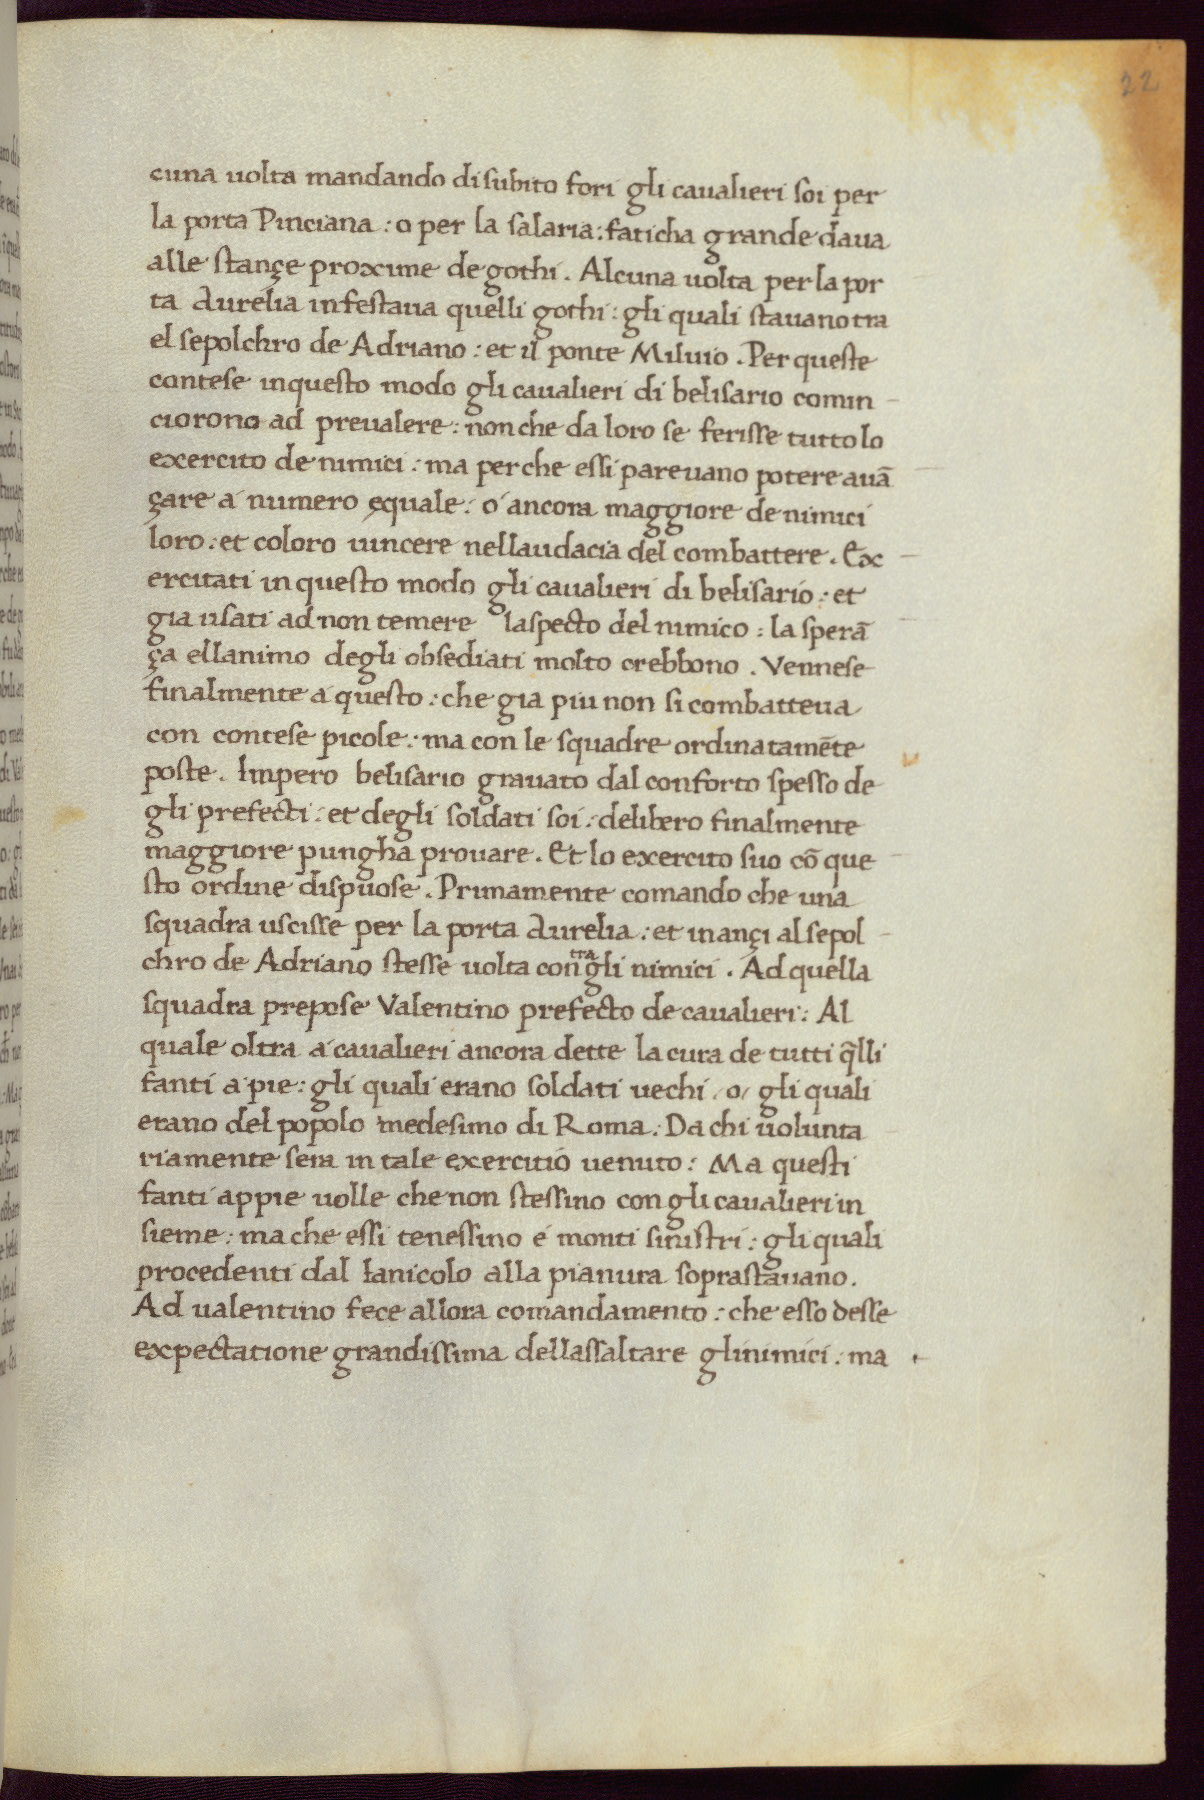 22
cuna uolta mandando di subito fori gli caualieri soi per
la porta Pinciana : o per la salaria : faticha grande daua
alle stançe proxime de gothi . Alcuna uolta per la por
ta Aurelia infestaua quelli gothi : gli quali stauano tra
el sepolchro de Adriano : et il ponte Miluio . Per queste
contese inquesto modo gli caualieri di belisario comin
ciorono ad preualere : non che da loro se ferisse tutto lo
exercito de nimici : ma perche essi pareuano potere auā
çare á numero equale : ó ancora maggiore de nimici
loro : et coloro uincere nellaudacia del combattere . Ex
ercitati in questo modo gli caualieri di belisario : et
gia usati ad non temere laspecto del nimico : la sperā
ça ellanimo degli obsediati molto crebbono . Vennese
finalmente á questo : che gia piu non si combatteua
con contese picole : ma con le squadre ordinatamēte
poste . Impero belisario grauato dal conforto spesso de
gli prefecti : et degli soldati soi : delibero finalmente
maggiore pungha prouare . Et lo exercito suo cō que
sto ordine dispuose . Primamente comando che una
squadra uscisse per la porta Aurelia : et inançi al sepol
chro de Adriano stesse uolta contra gli nimici . Ad quella
squadra prepose Valentino prefecto de caualieri : Al
quale oltra á caualieri ancora dette la cura de tutti q̄lli
fanti a pie : gli quali erano soldati uechi / o / gli quali
erano del popolo medesimo di Roma : Da chi uolunta
riamente sera in tale exercitio uenuto : Ma questi
fanti appie uolle che non stessino con gli caualieri in
sieme : ma che essi tenessino é monti sinistri : gli quali
procedenti dal Ianicolo alla pianura soprastauano .
Ad ualentino fece allora comandamento : che esso desse
expectatione grandissima dellassaltare glinimici : ma